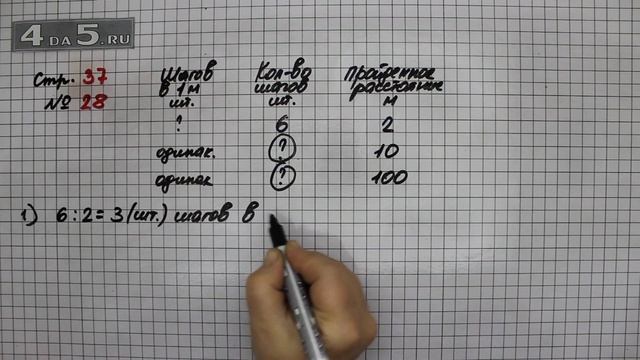 4DA5.RU
Стр. 37
№ 28
Шагов в 1 м шт.
Кол-во шагов шт.
Пройденное расстояние м
? 6 2
одинак. ? 10
одинак ? 100
1) 6 : 2 = 3 (шт.) шагов в